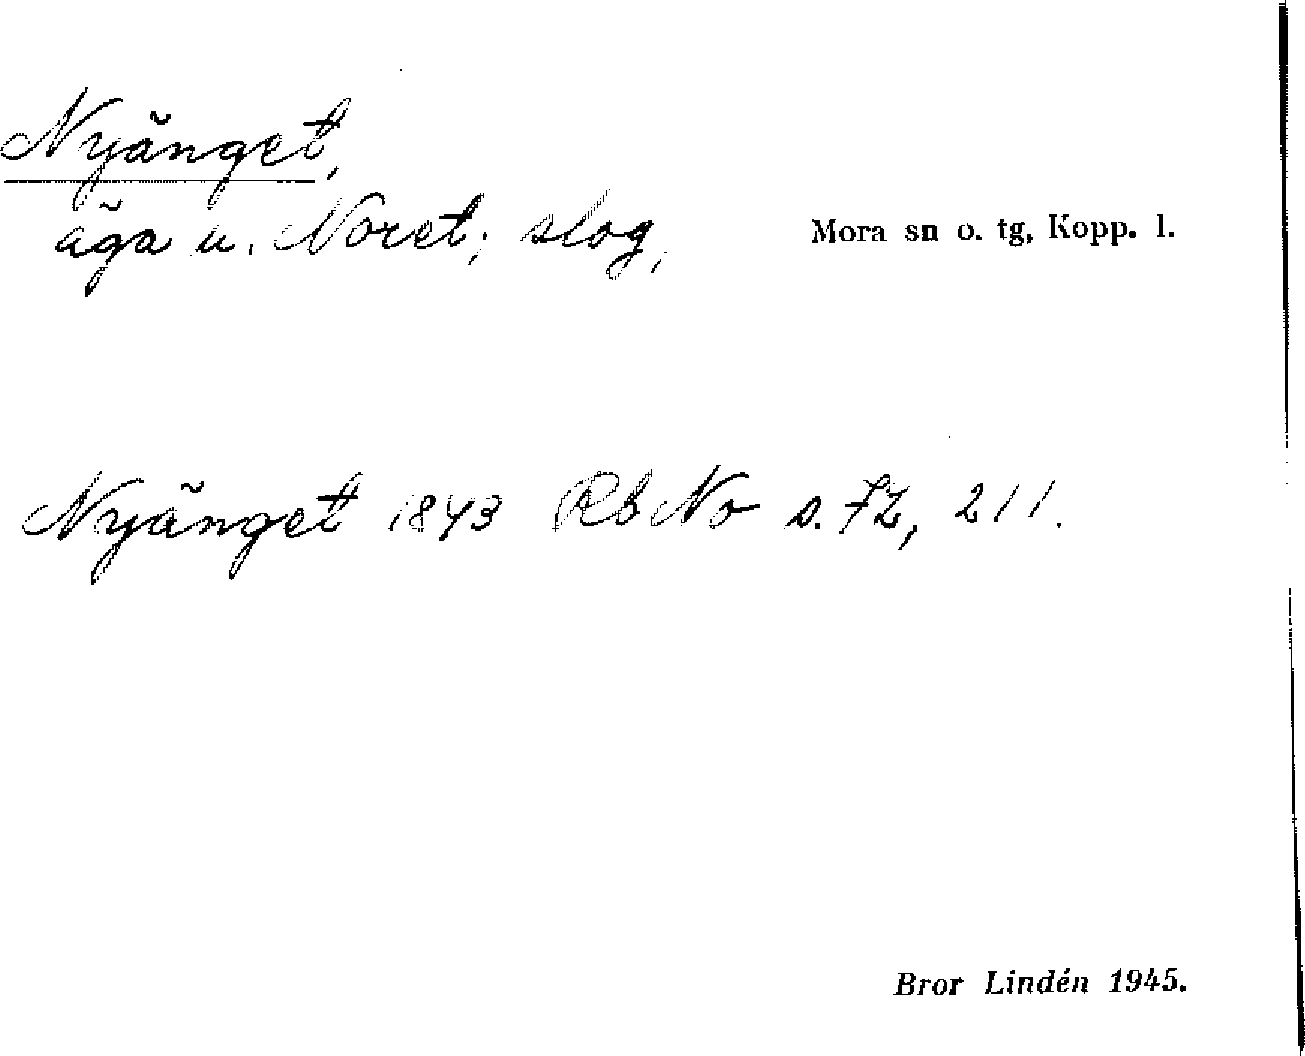 Nyänget,
äga u. Noret; slog,
Mora sn o. tg, Kopp. l.
Nyänget 1843 Rb No s. 72, 211.
Bror Lindén 1945.